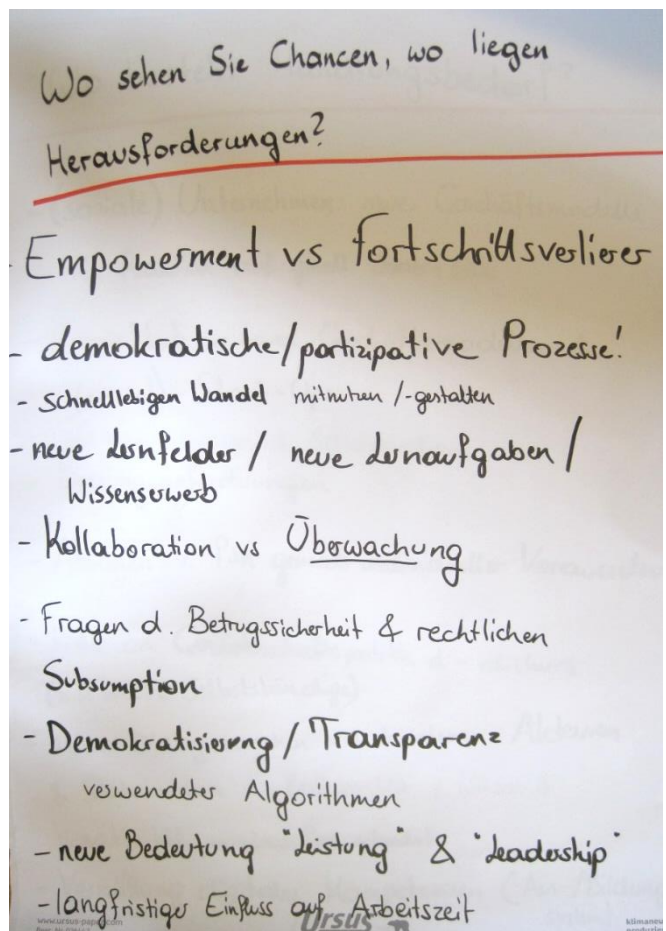 Wo sehen Sie Chancen, wo liegen
Herausforderungen?
- Empowerment vs Fortschrittsverlierer
- demokratische/partizipative Prozesse!
- Schnelllebigen Wandel mitnutzen /-gestalten
- neue Lernfelder / neue Lernaufgaben /
Wissenserwerb
- Kollaboration vs Überwachung
- Fragen d. Betrugssicherheit & rechtlichen
Subsumption
- Demokratisierung / Transparenz
verwendeter Algorithmen
- neue Bedeutung "Leistung" & "Leadership"
- langfristiger Einfluss auf Arbeitszeit
www.ursus-papier.com Ursus klimaneu